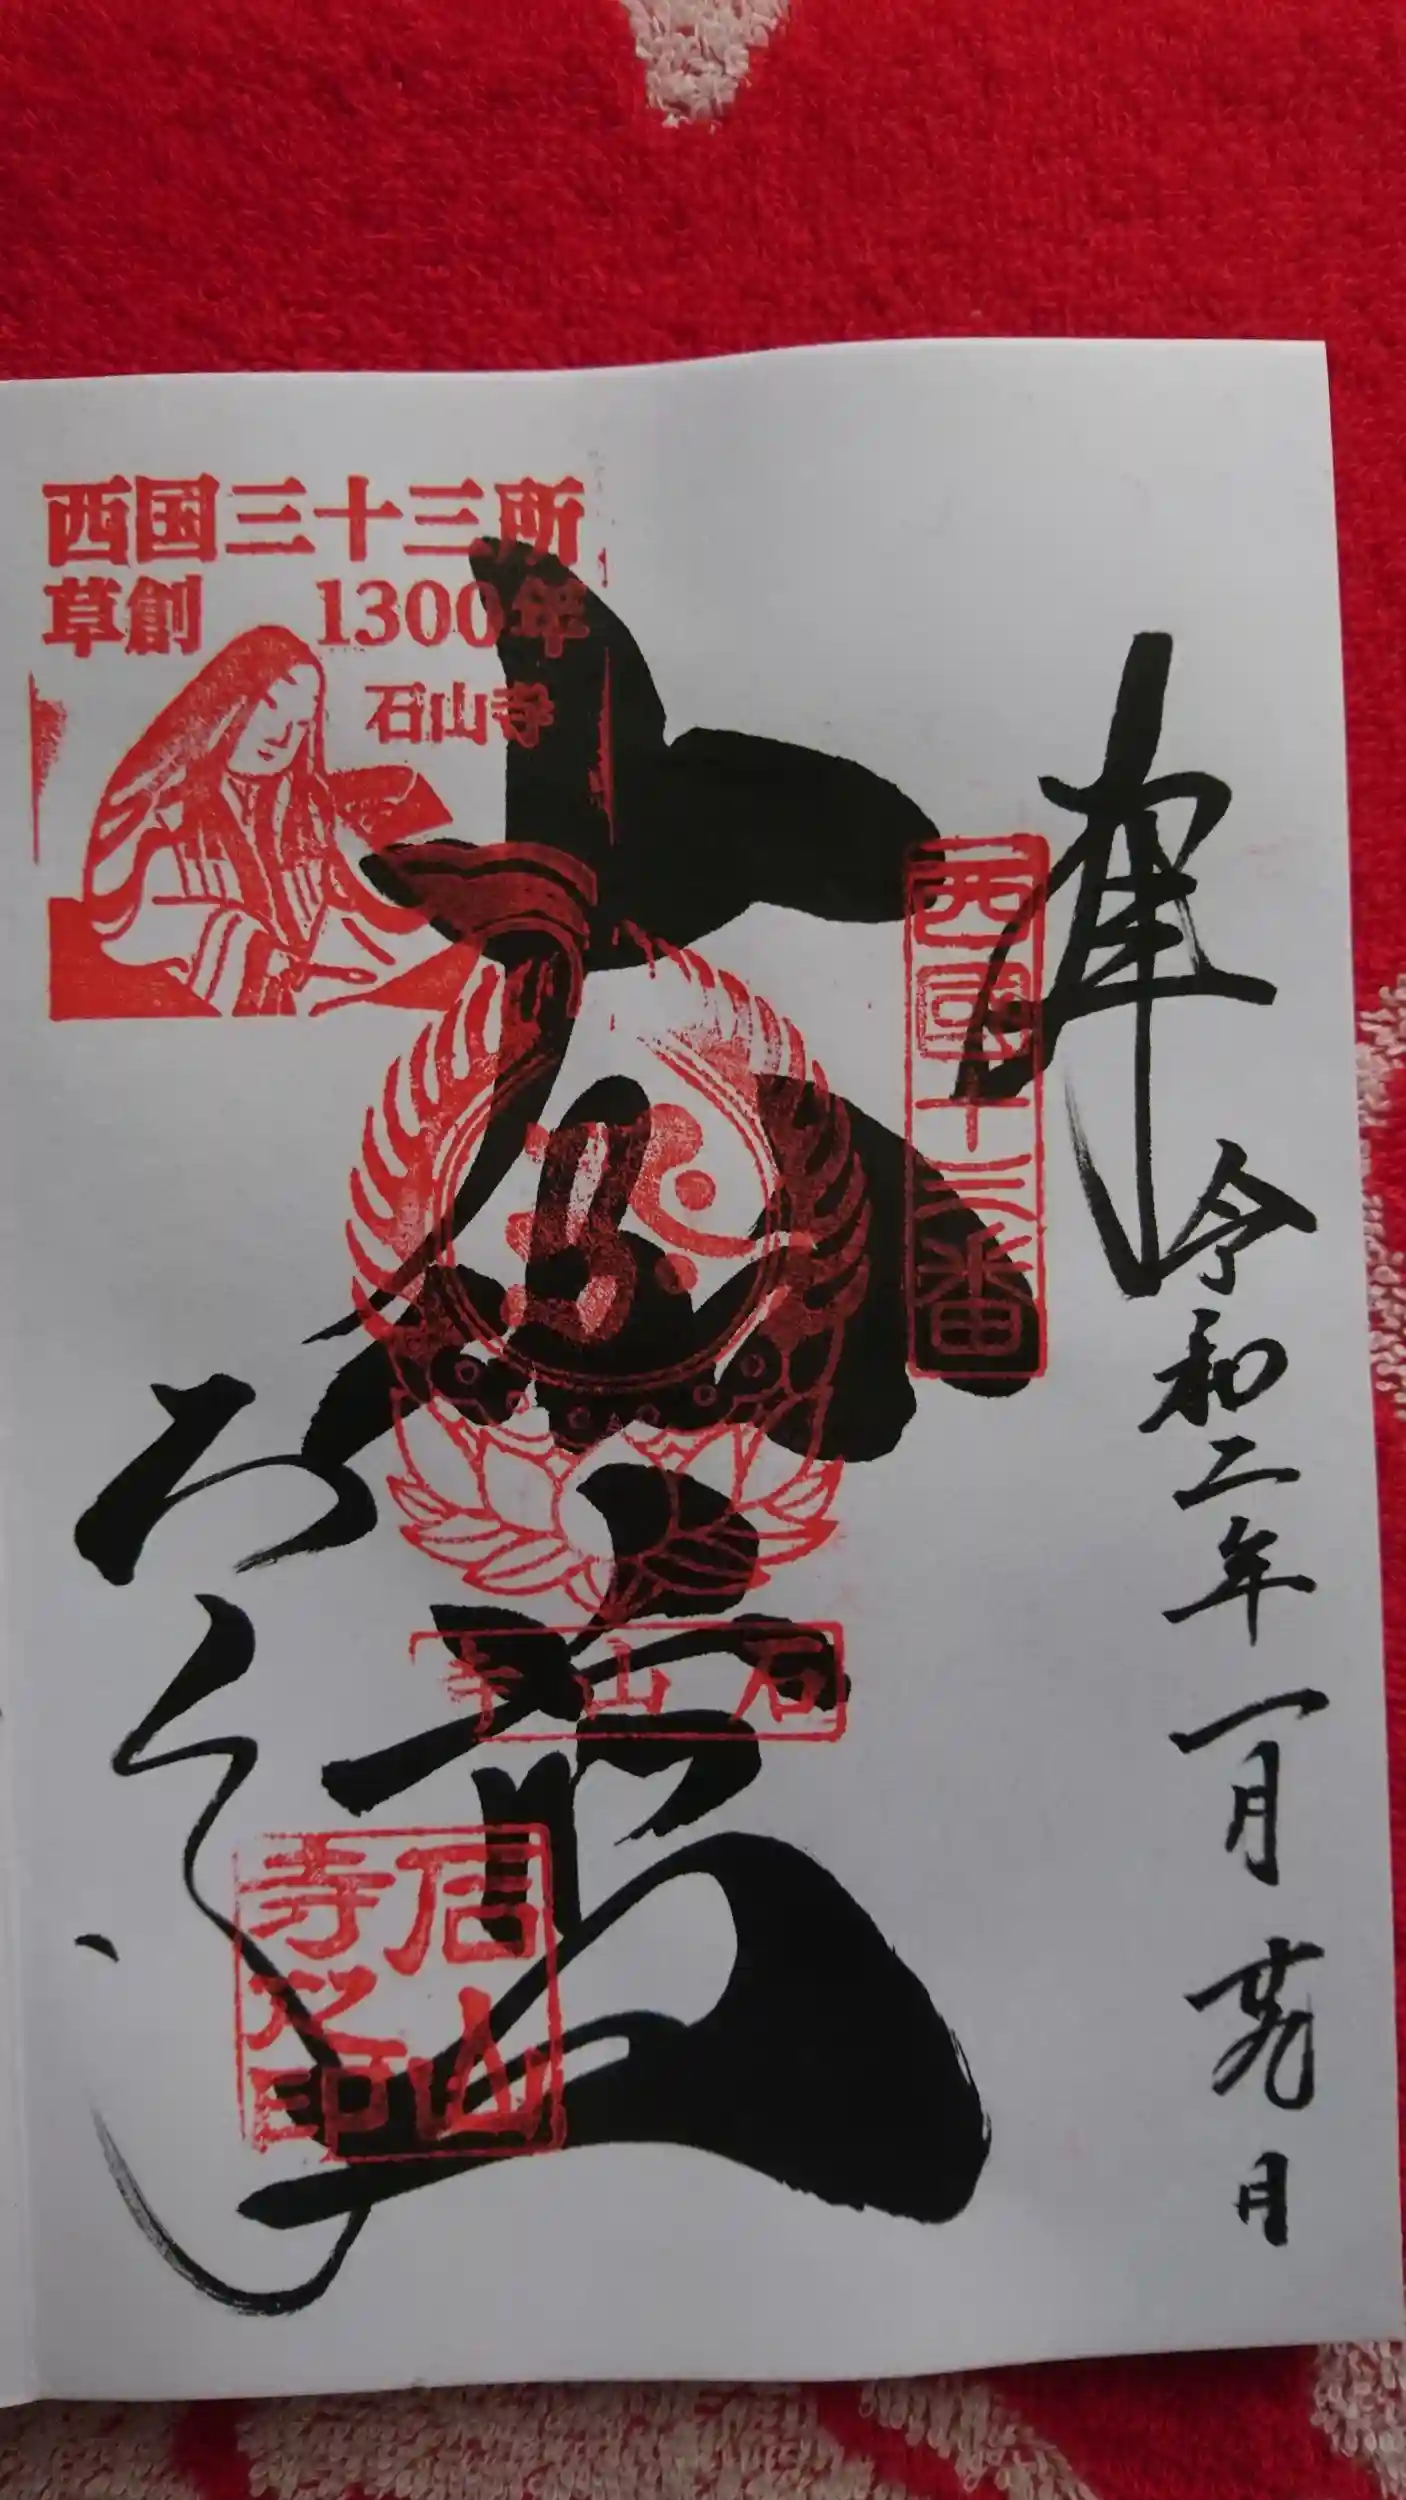 奉拝
令和二年一月荒月
西國十三番
大悲殿
石山寺
西国三十三所
草創 1300年
石山寺
石山寺之印